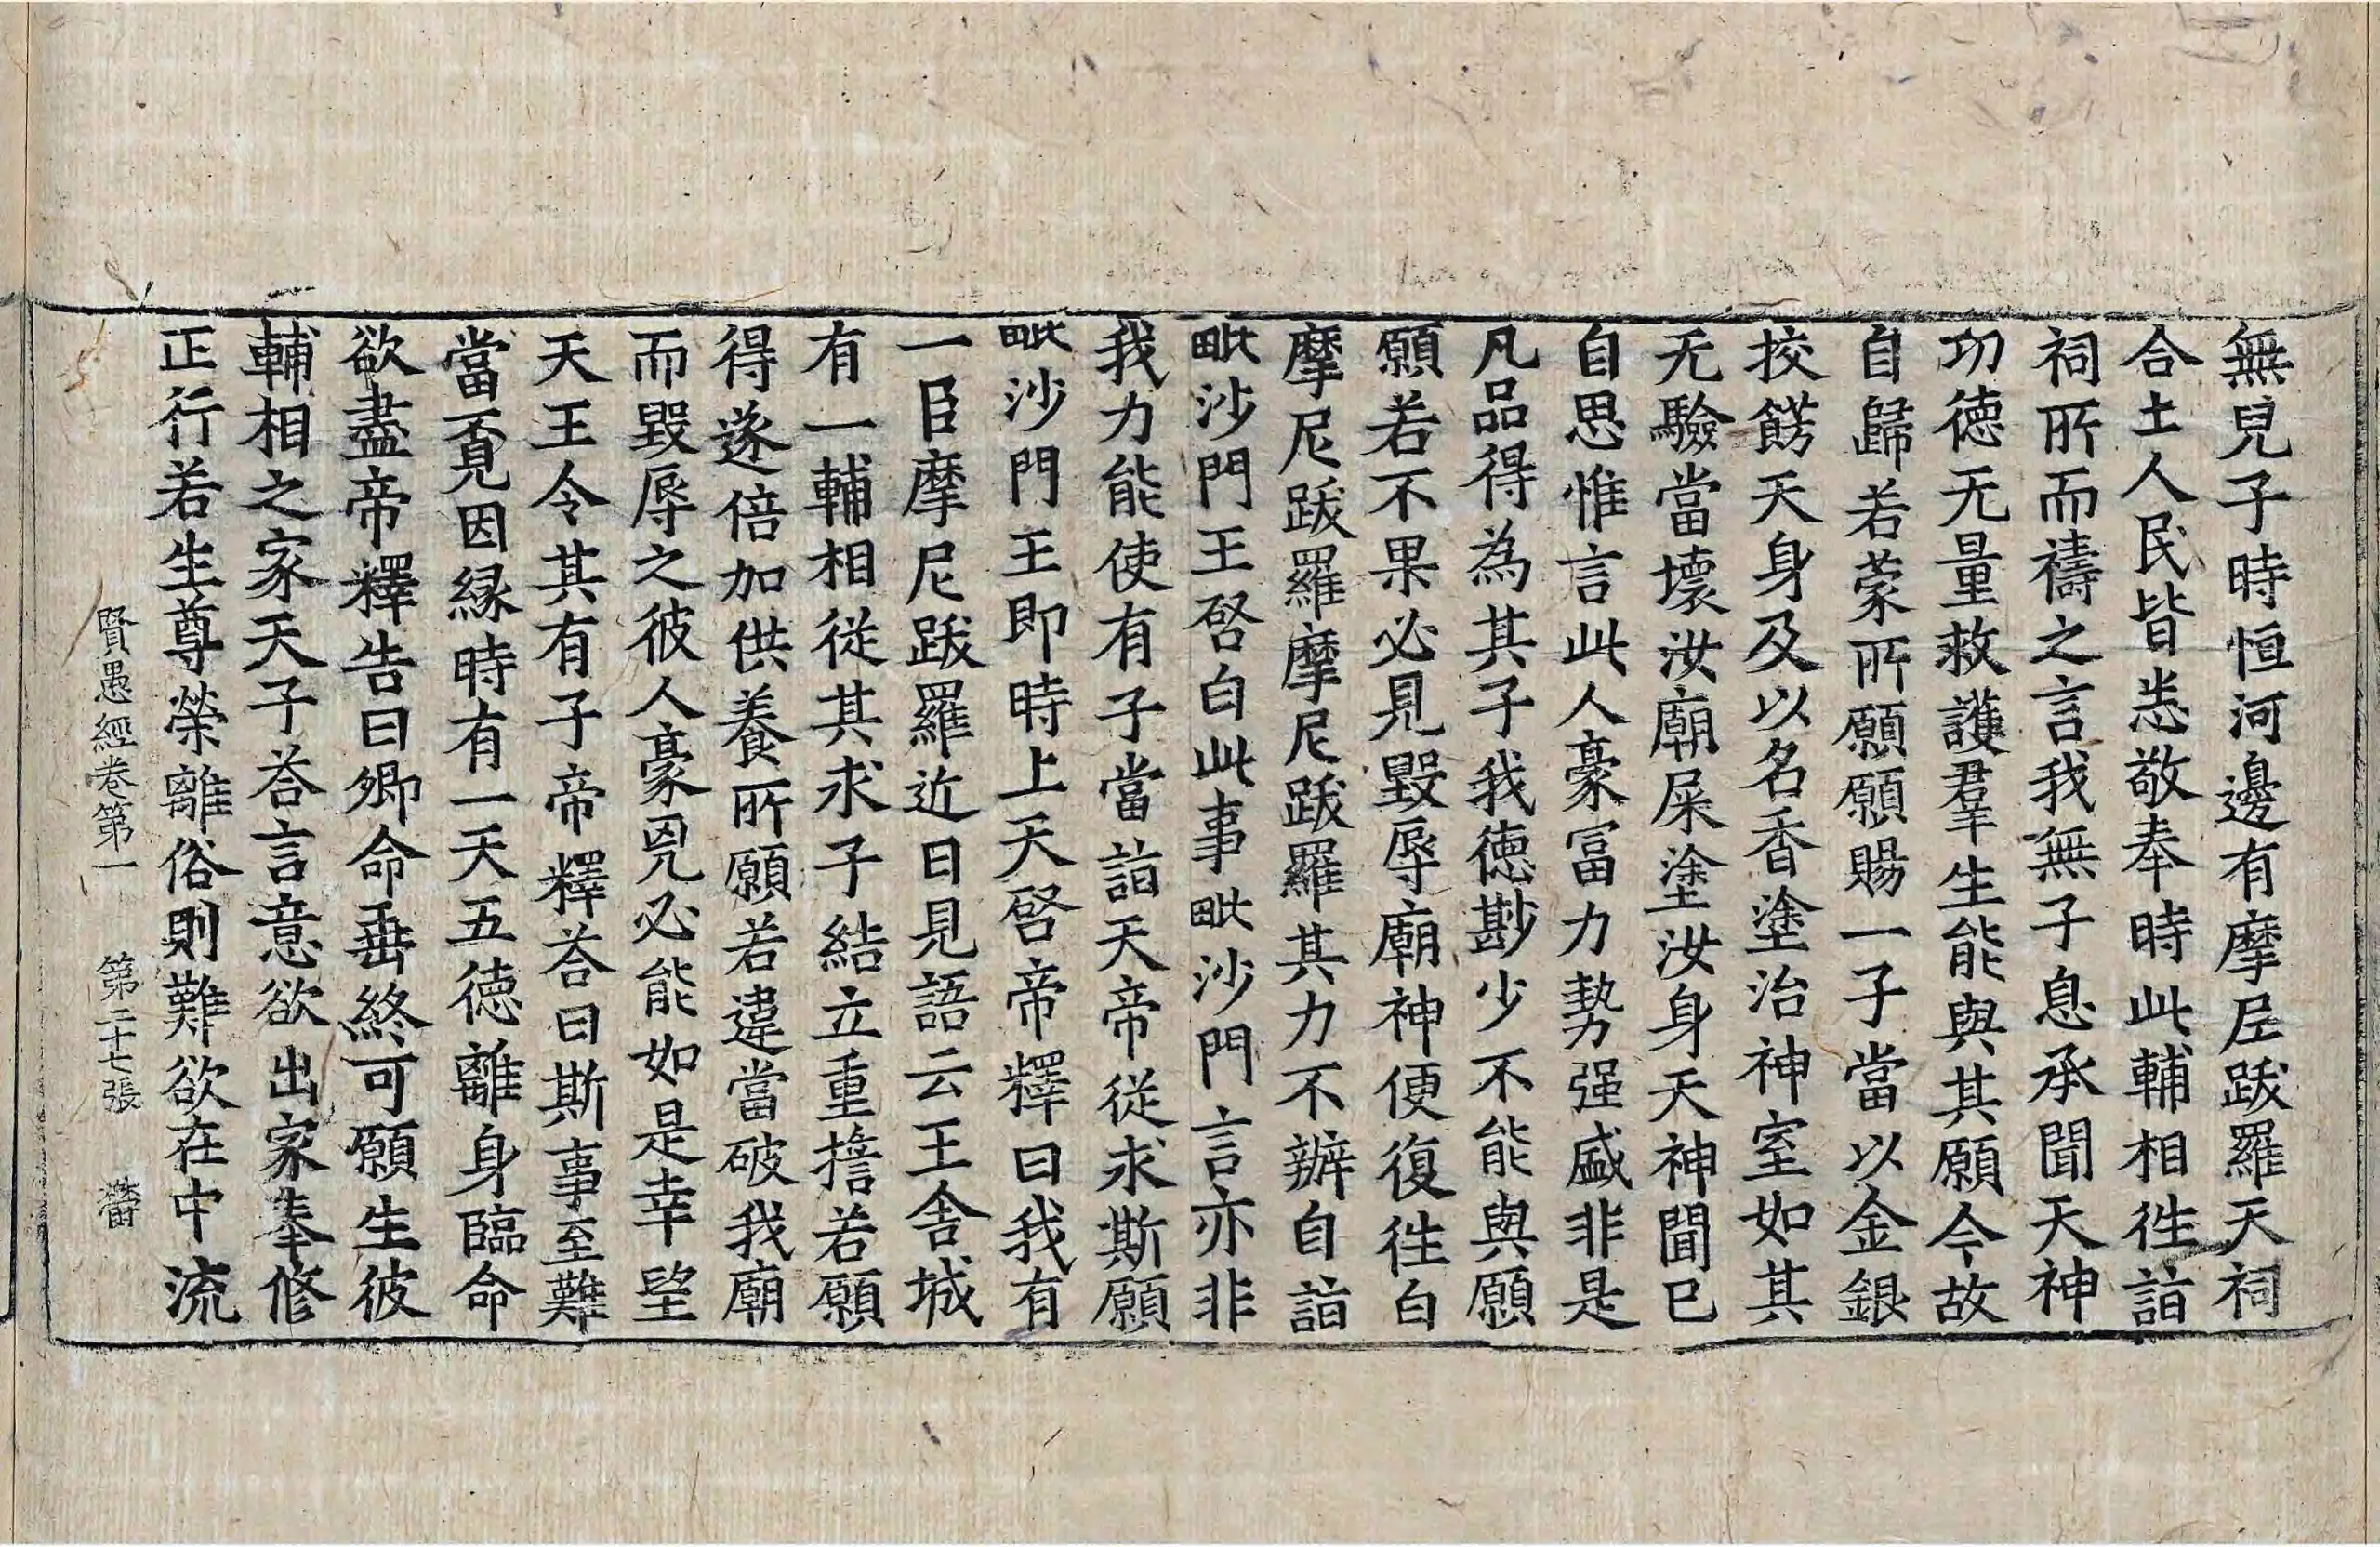 無兒子時恒河邊有摩尼跋羅天祠
合土人民皆悉敬奉時此輔相往詣
祠所而禱之言我無子息承聞天神
功德无量救護羣生能與其願今故
自歸若蒙所願願賜一子當以金銀
挍餝天身及以名香塗治神室如其
无驗當壞汝廟屎塗汝身天神聞已
自思惟言此人豪富力勢强盛非是
凡品得為其子我德尠少不能與願
願若不果必見毀辱廟神便復往白
摩尼跋羅摩尼跋羅其力不辦自詣
毗沙門王啓白此事毗沙門言亦非
我力能使有子當詣天帝從求斯願
毗沙門王即時上天啓帝釋曰我有
一臣摩尼跋羅近日見語云王舍城
有一輔相從其求子結立重擔若願
得遂倍加供養所願若違當破我廟
而毀辱之彼人豪兇必能如是幸望
天王令其有子帝釋荅曰斯事至難
當覔因緣時有一天五德離身臨命
欲盡帝釋告曰卿命垂終可願生彼
輔相之家天子荅言意欲出家奉修
正行若生尊榮離俗則難欲在中流
賢愚經卷第一 第二十七張